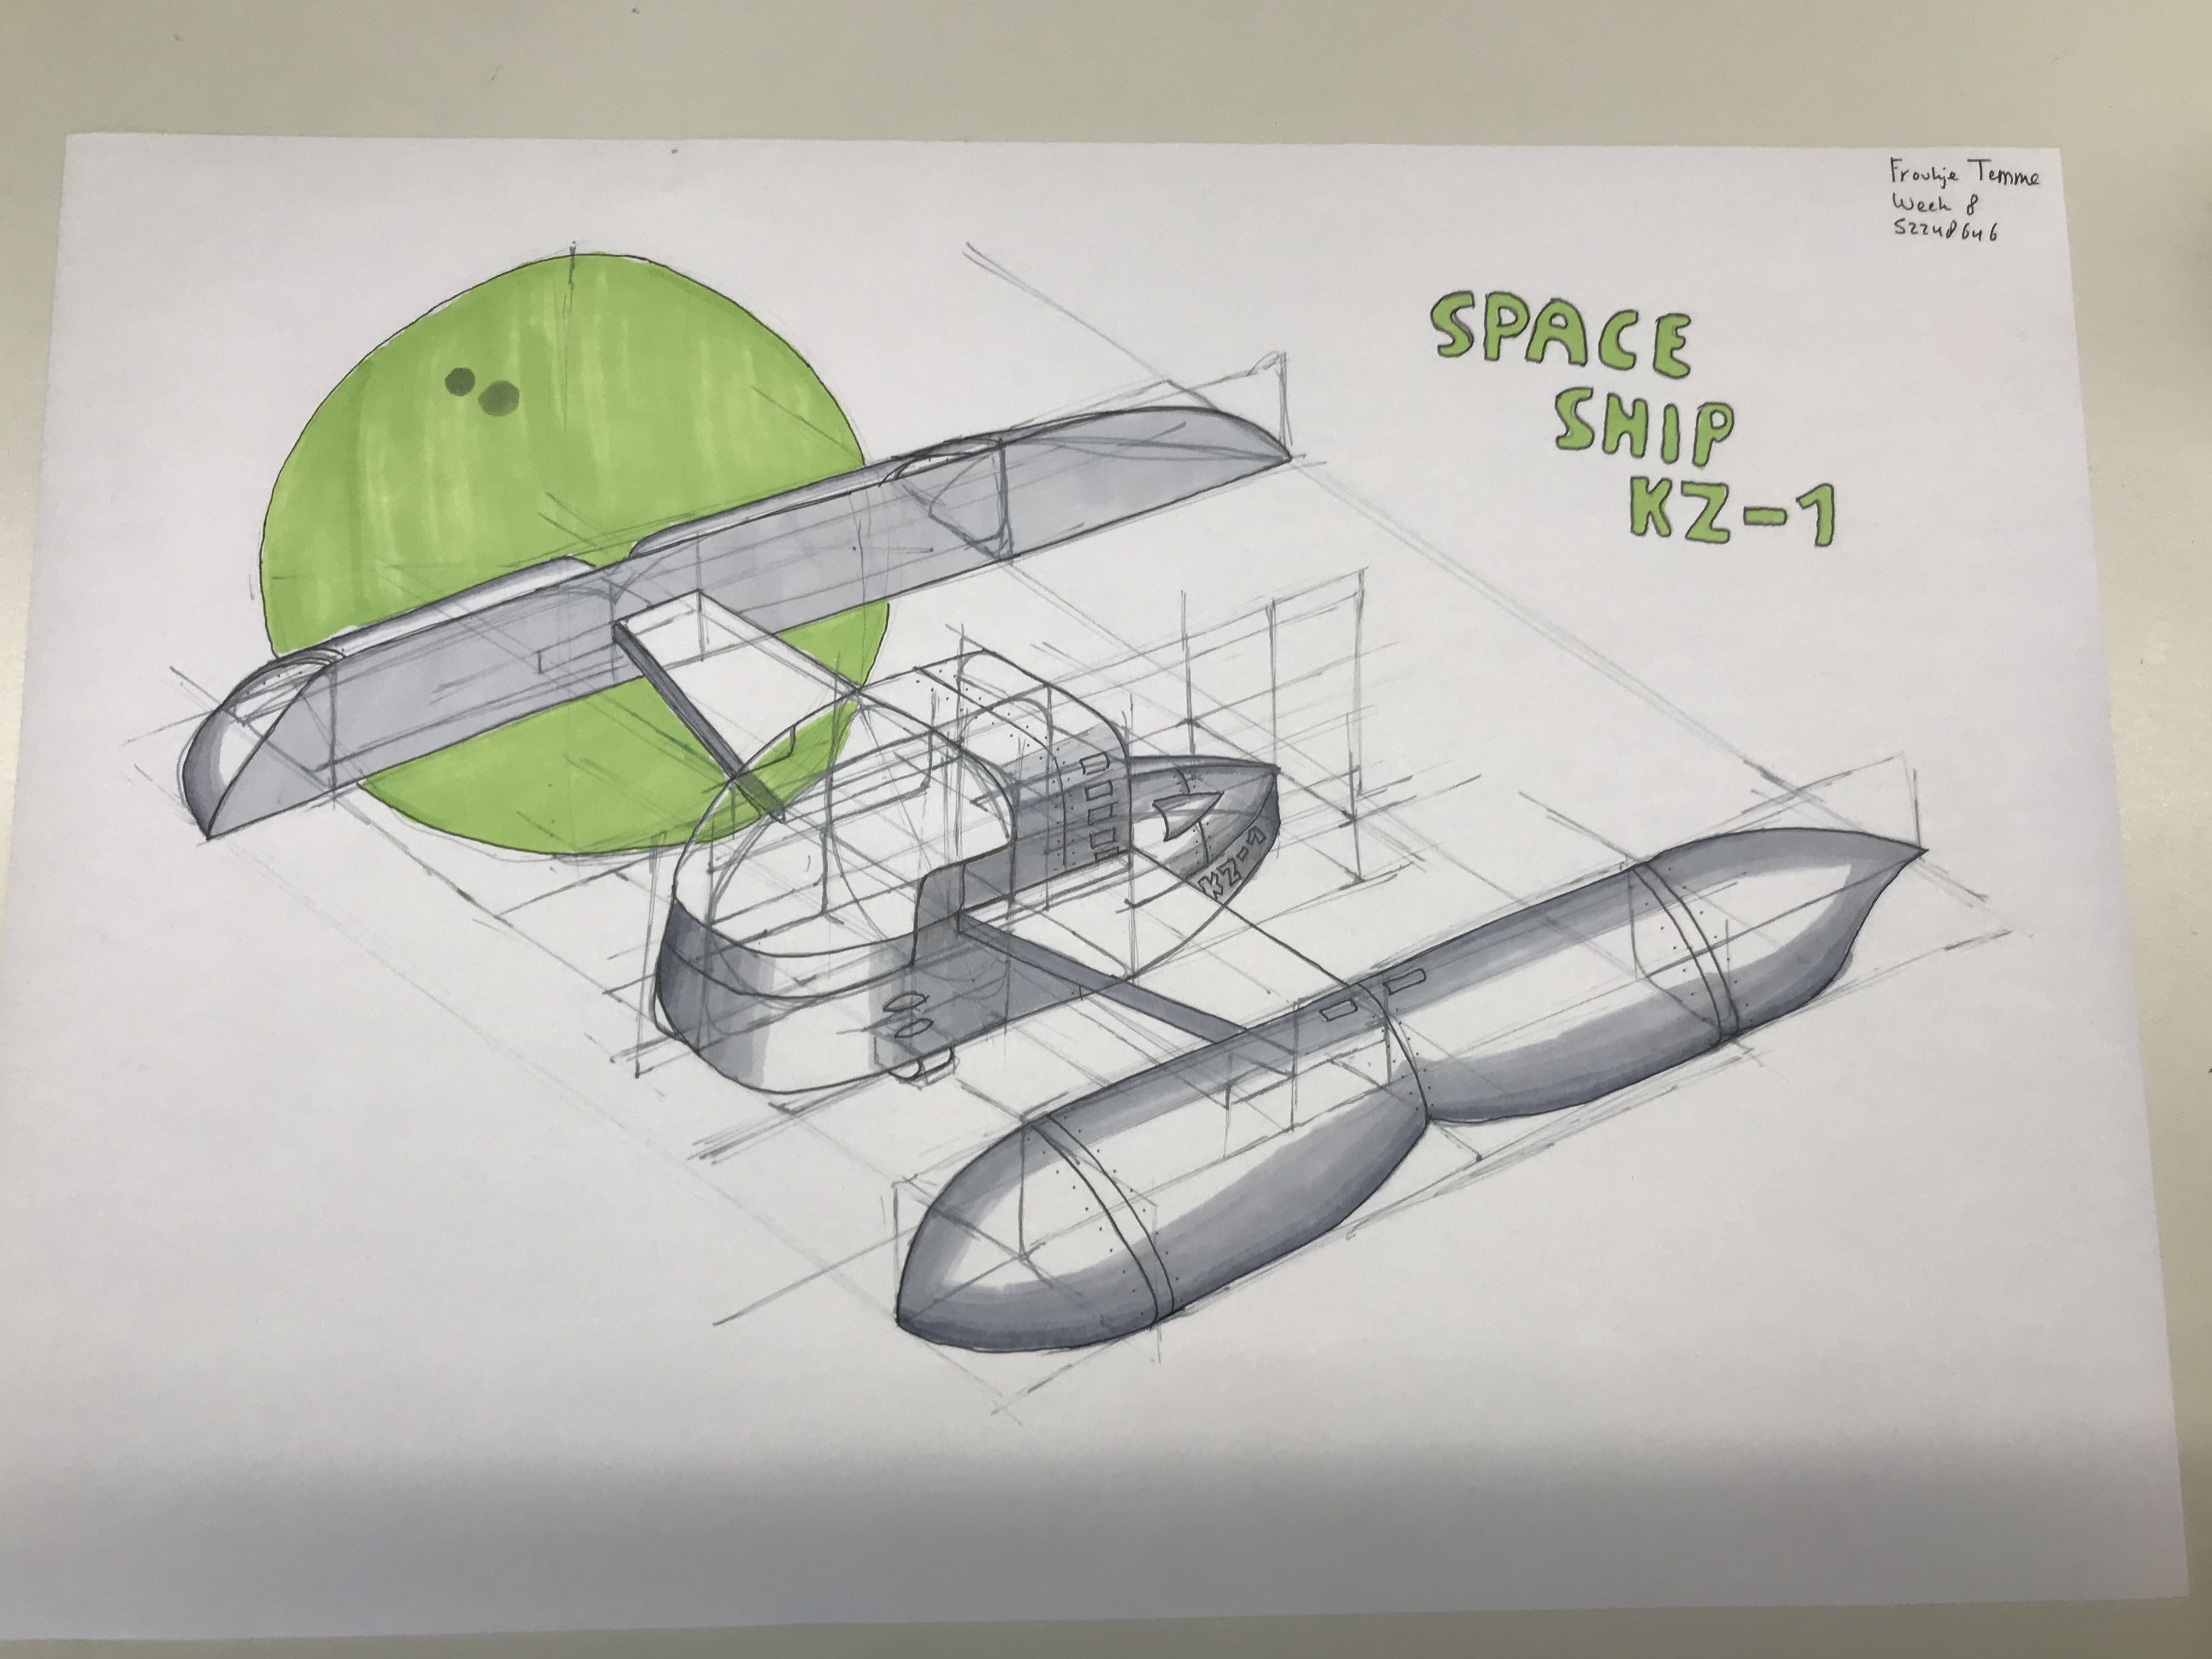 Froukje Temme
Week 8
52248646
SPACE
SHIP
KZ-1
KZ-1